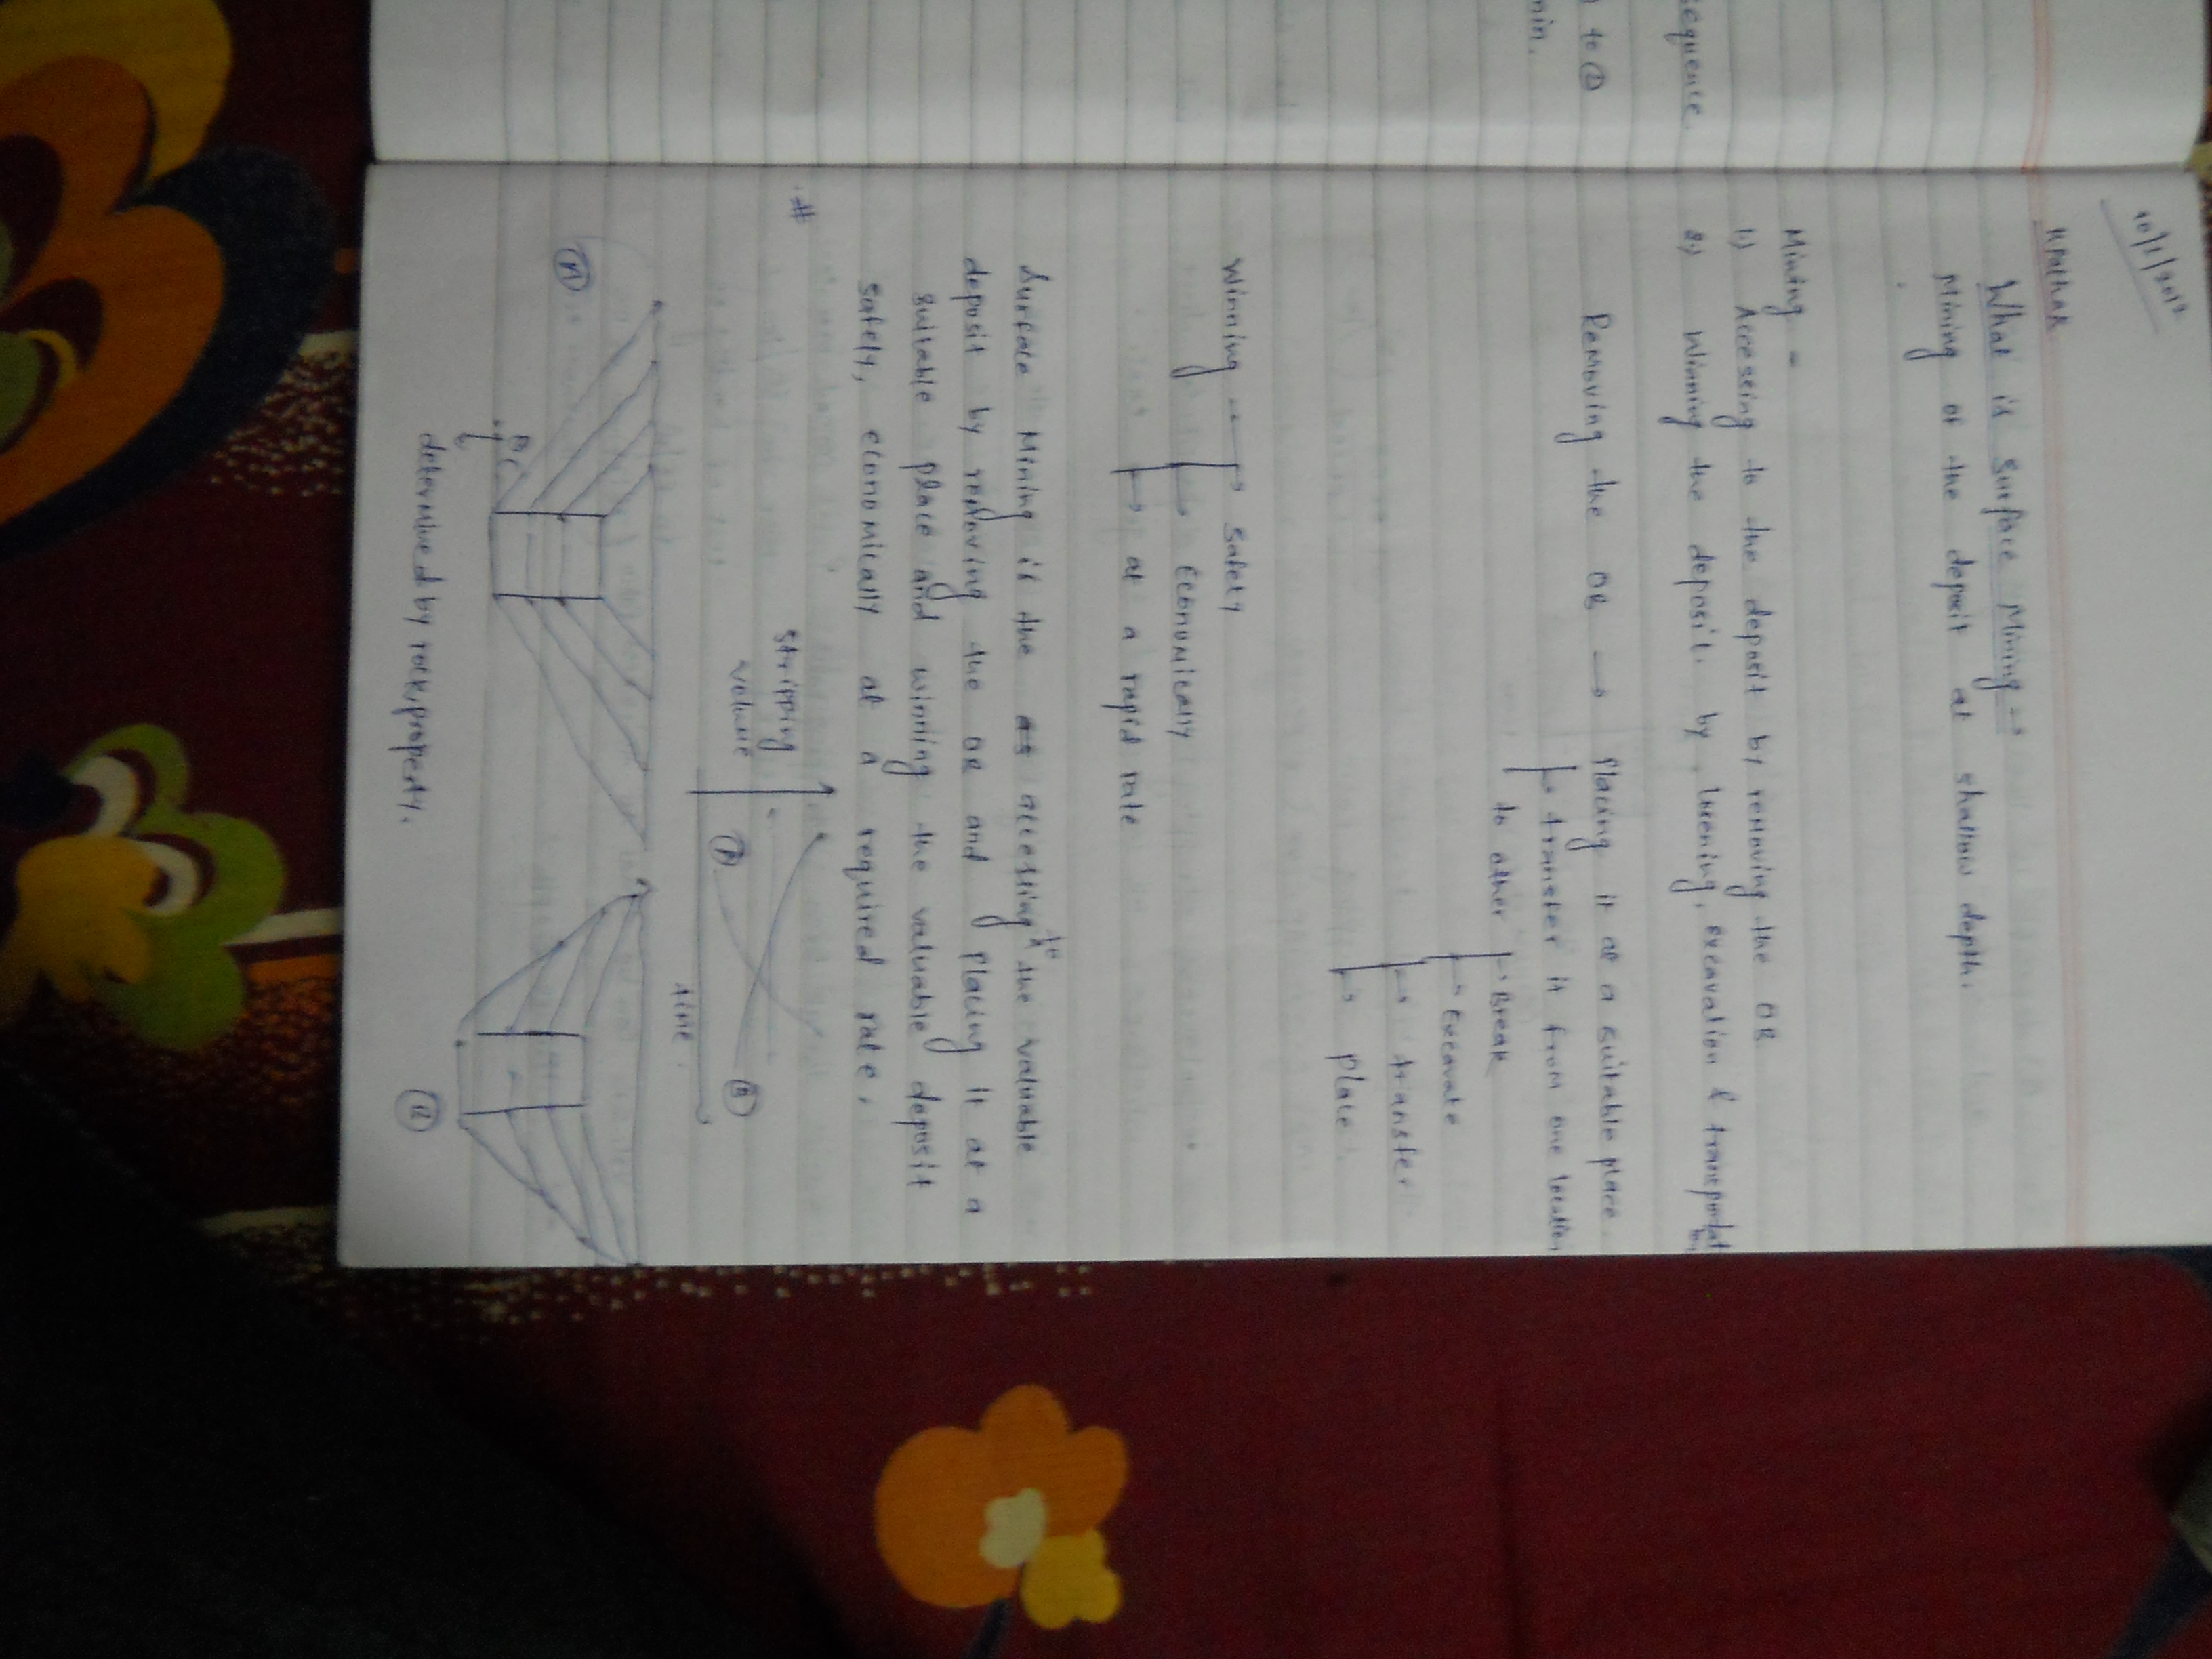 sequence.
to ②
min.
10/1/2017
What is Surface Mining →
Mining of the deposit at shallow depth.
Mining -
1) Accesing to the deposit by removing the OB
2) Winning the deposit. by loosening, excavation & transportation
Removing the OB → Placing it at a suitable place.
→ transfer it from one location
to other → Break
→ Excavate
→ transfer
→ place
Winning → Safety
→ Economically
→ at a rapid rate
Surface Mining is the accessing to the valuable
deposit by removing the OB and placing it at a
suitable place and winning the valuable deposit
safely, economically at a required rate.
#
Stripping
volume
time
Ⓐ
Ⓑ
Ⓐ
Ⓑ
determined by rock property.